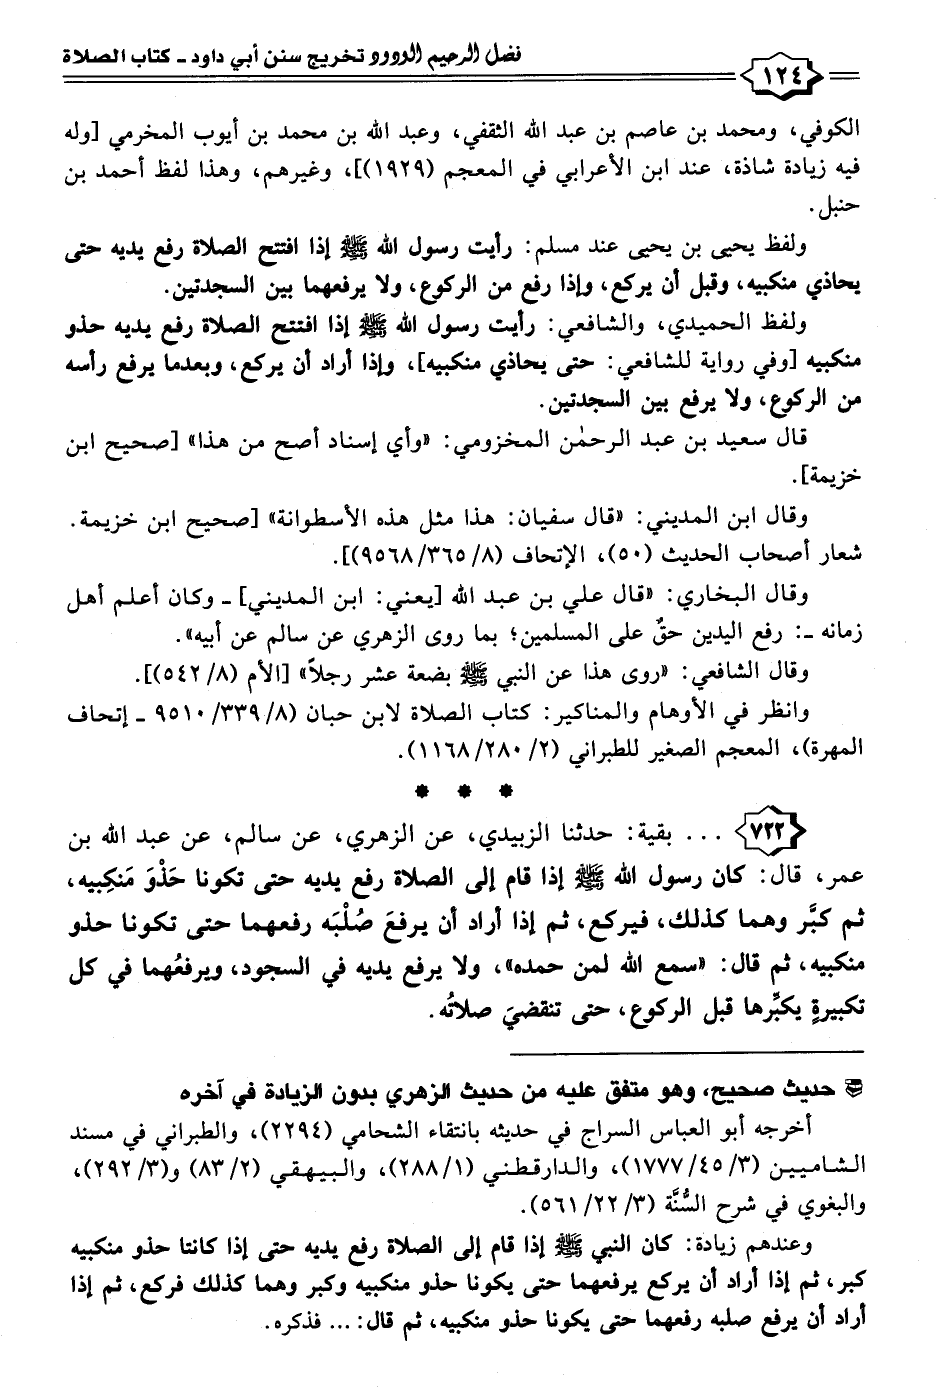 فضل الرحيم الودود تخريج سنن أبي داود - كتاب الصلاة
١٢٤
الكوفي، ومحمد بن عاصم بن عبد الله الثقفي، وعبد الله بن محمد بن أيوب المخرمي [وله
فيه زيادة شاذة، عند ابن الأعرابي في المعجم (١٩٢٩)]، وغيرهم، وهذا لفظ أحمد بن
حنبل.
ولفظ يحيى بن يحيى عند مسلم: رأيت رسول الله ﷺ إذا افتتح الصلاة رفع يديه حتى
يحاذي منكبيه، وقبل أن يركع، وإذا رفع من الركوع، ولا يرفعهما بين السجدتين.
ولفظ الحميدي، والشافعي: رأيت رسول الله ﷺ إذا افتتح الصلاة رفع يديه حذو
منكبيه [وفي رواية للشافعي: حتى يحاذي منكبيه]، وإذا أراد أن يركع، وبعدما يرفع رأسه
من الركوع، ولا يرفع بين السجدتين.
قال سعيد بن عبد الرحمٰن المخزومي: «وأي إسناد أصح من هذا» [صحيح ابن
خزيمة].
وقال ابن المديني: «قال سفيان: هذا مثل هذه الأسطوانة» [صحيح ابن خزيمة.
شعار أصحاب الحديث (٥٠)، الإتحاف (٨/٣٦٥/٩٥٦٨)].
وقال البخاري: «قال علي بن عبد الله [يعني: ابن المديني] - وكان أعلم أهل
زمانه -: رفع اليدين حقٌ على المسلمين؛ بما روى الزهري عن سالم عن أبيه».
وقال الشافعي: «روى هذا عن النبي ﷺ بضعة عشر رجلاً» [الأم (٨/٥٤٢)].
وانظر في الأوهام والمناكير: كتاب الصلاة لابن حبان (٨/٣٣٩/٩٥١٠ - إتحاف
المهرة)، المعجم الصغير للطبراني (٢/٢٨٠/١١٦٨).
* * *
٧٢٢ ... بقية: حدثنا الزبيدي، عن الزهري، عن سالم، عن عبد الله بن
عمر، قال: كان رسول الله ﷺ إذا قام إلى الصلاة رفع يديه حتى تكونا حَذْوَ مَنكِبيه،
ثم كبَّر وهما كذلك، فيركع، ثم إذا أراد أن يرفعَ صُلْبَه رفعهما حتى تكونا حذو
منكبيه، ثم قال: «سمع الله لمن حمده»، ولا يرفع يديه في السجود، ويرفعُهما في كل
تكبيرةٍ يكبِّرها قبل الركوع، حتى تنقضيَ صلاتُه.
حديث صحيح، وهو متفق عليه من حديث الزهري بدون الزيادة في آخره
أخرجه أبو العباس السراج في حديثه بانتقاء الشحامي (٢٢٩٤)، والطبراني في مسند
الشاميين (٣/٤٥/١٧٧٧)، والدارقطني (١/٢٨٨)، والبيهقي (٢/٨٣) و(٣/٢٩٢)،
والبغوي في شرح السُّنَّة (٣/٢٢/٥٦١).
وعندهم زيادة: كان النبي ﷺ إذا قام إلى الصلاة رفع يديه حتى إذا كانتا حذو منكبيه
كبر، ثم إذا أراد أن يركع يرفعهما حتى يكونا حذو منكبيه وكبر وهما كذلك فركع، ثم إذا
أراد أن يرفع صلبه رفعهما حتى يكونا حذو منكبيه، ثم قال: ... فذكره.